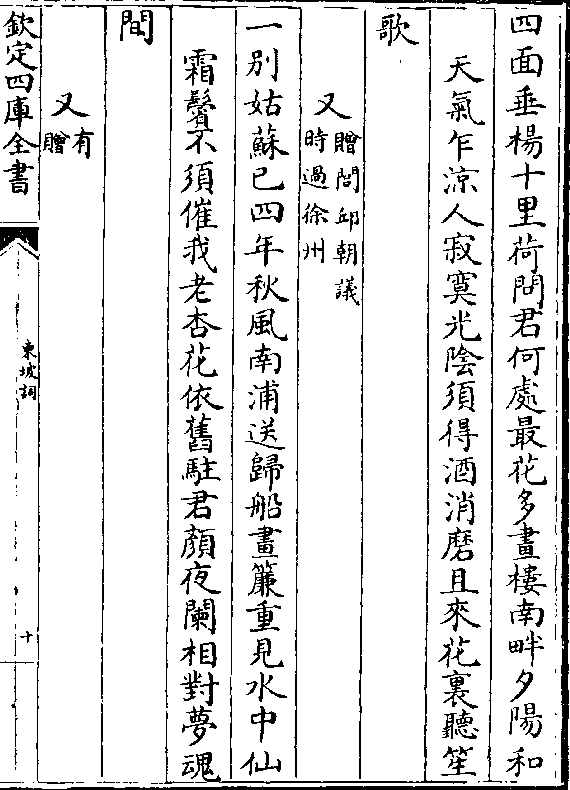 四面垂楊十里荷問君何處最花多畫樓南畔夕陽和
天氣乍涼人寂寞光陰須得酒消磨且來花裏聽笙
歌
又贈問邱朝議
時過徐州
一別姑蘇已四年秋風南浦送歸船畫簾重見水中仙
霜鬢不須催我老杏花依舊駐君顏夜闌相對夢魂
間
又有
贈
欽定四庫全書
東坡詞
十